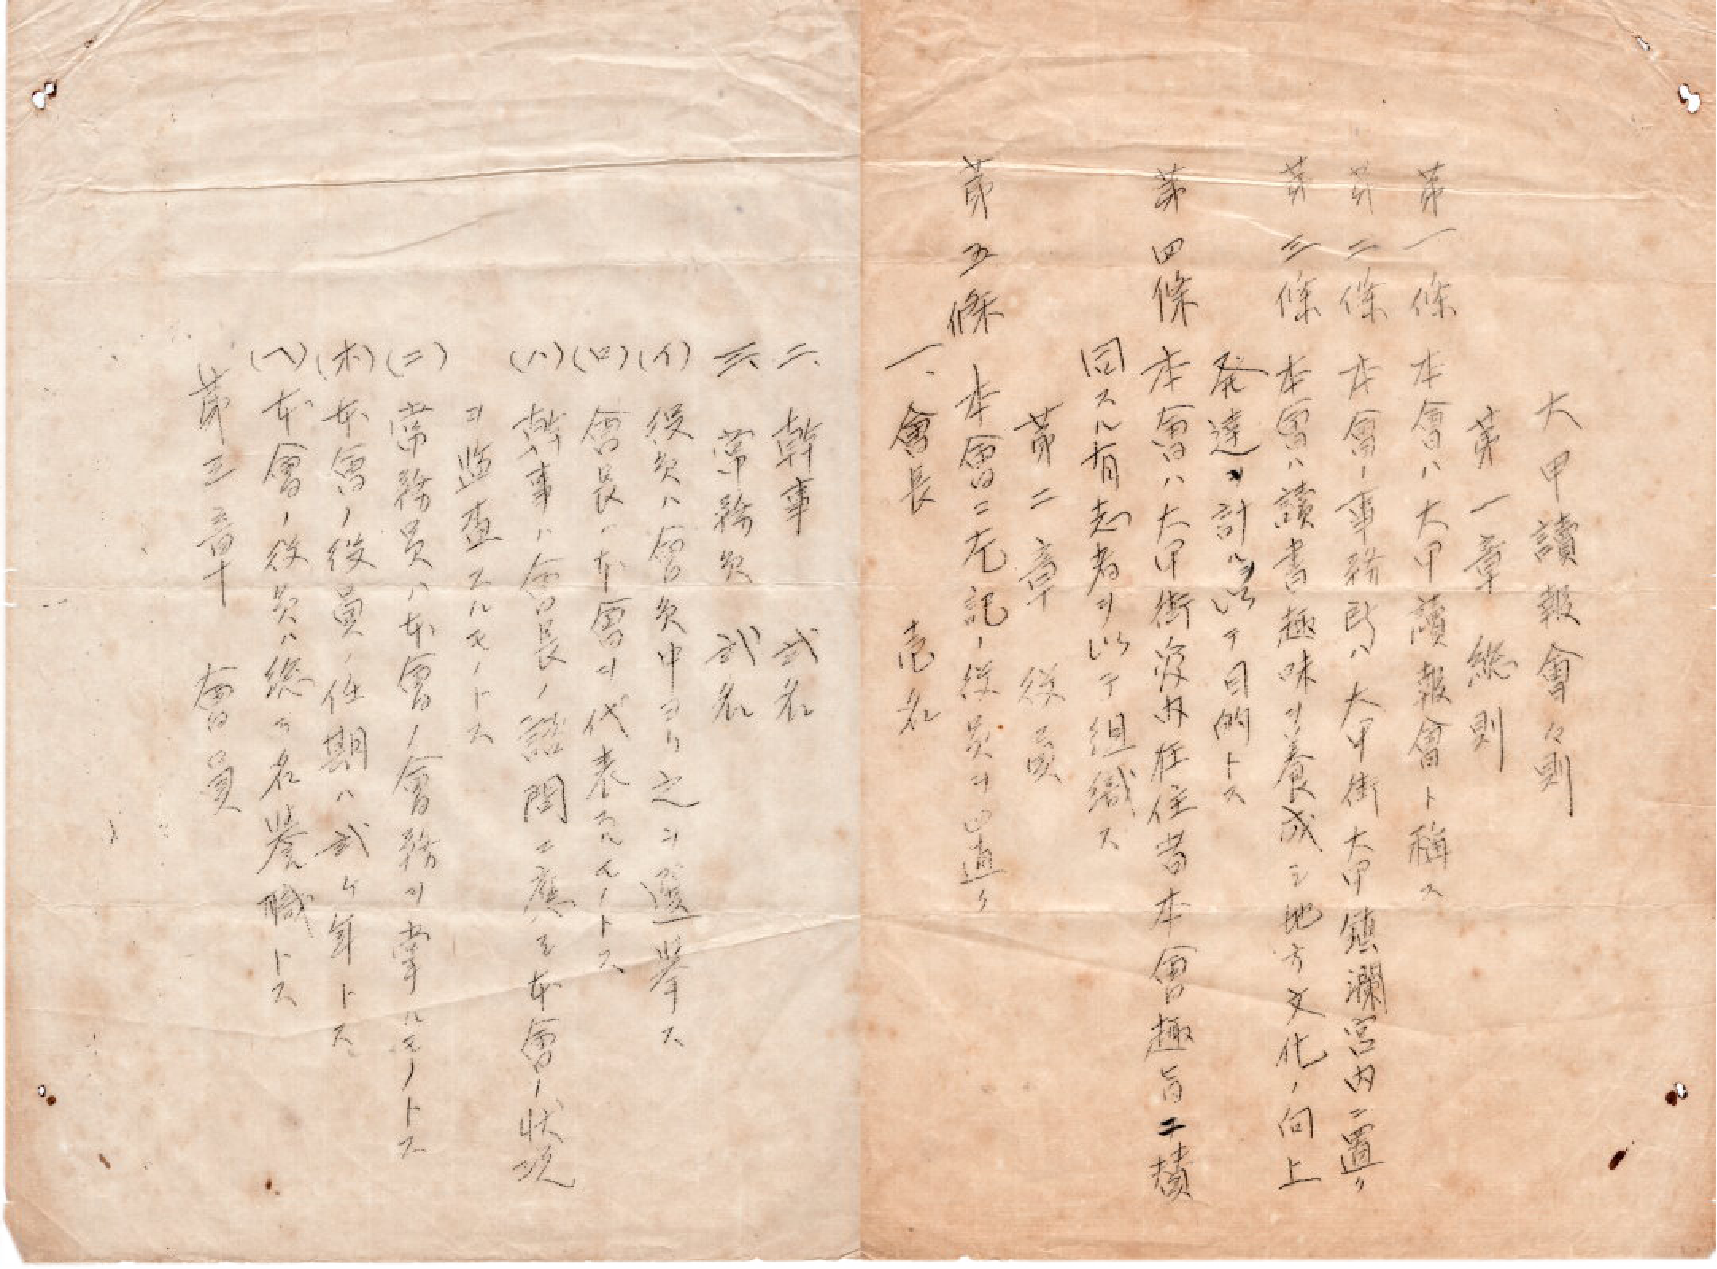 大甲讀報會々則
第一章　總則
第一條　本會ハ大甲讀報會ト稱ス
第二條　本會ノ事務所ハ大甲街大甲鎮瀾宮内ニ置ク
第三條　本會ハ讀書趣味ヲ養成シ地方文化ノ向上
発達ヲ計ルヲ以テ目的トス
第四條　本會ハ大甲街及内在住者本會趣旨ニ賛
同スル有志者ヲ以テ組織ス
第二章　役員
第五條　本會ニ左記ノ役員ヲ置ク
一、會長　壱名
二、幹事　弐名
三、常務員　弐名
(イ)役員ハ會員中ヨリ之ヲ選擧ス
(ロ)會長ハ本會ヲ代表スルモノトス
(ハ)幹事ハ會長ノ諮問ニ應シ本會ノ狀況
ヲ監査スルモノトス
(ニ)常務員ハ本會ノ會務ヲ掌ルモノトス
(ホ)本會ノ役員ノ任期ハ弐ケ年トス
(ヘ)本會ノ役員ハ總テ名譽職トス
第三章　會員